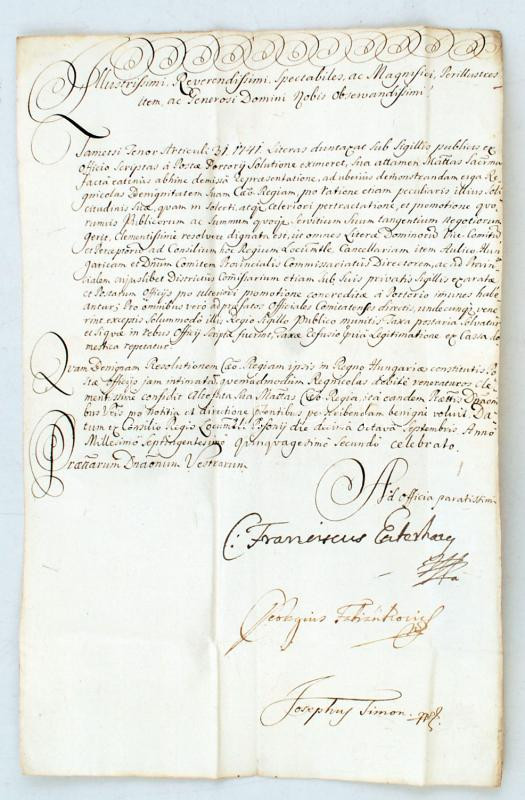 Illustrissimi, Reverendissimi, Spectabiles, ac Magnifici, Perillustres
item, ac Generosi Domini Nobis Observandissimi!
Tametsi Tenor Articuli 31 1741. Literas duntaxat sub Sigillis publicis ex
Officio Scriptas à Postæ Portorij Solutione eximeret, Sua attamen Mattas Sacrma
Facta eatenus abhinc demissâ Representatione, ad uberius demonstrandam erga Re
gnicolas Benignitatem Suam Cæo Regiam, pro ratione etiam peculiaris illius Soli
citudinis Suæ, quam in Solerti, atq Celeriori pertractatione, et promotione quo
rumvis Publicorum ac Summum Servitium Suum tangentium negotiorum
gerit, Clementissime resolvere dignata est, ut omnes Literæ Dominorum Vice Comitum
et Perceptorum ad Consilium hoc Regium Locumtle. Cancellariam item Aulico Hun
garicam et Dnum Comitem Provincialis Commissariatus Directorem, ac ad Provin
cialem cujuslibet Districtus Comisarium etiam Sub Suis privatis Sigillis exaratæ
et Postarum Officijs pro ulteriori promotione concreditæ à Portorio imunes habe
antur; Pro omnibus vero ad præfatos Officiales Comitatenses directis, undecunq vene
rint exceptis Solummodo illis Regio Sigillo Publico munitis, Taxa postaria solvatur
et Siquæ in rebus Officij Scriptæ fuerint, Taxæ refusio prævia Legitimatione ex Cassa do
mestica repetatur.
Quam Benignam Resolutionem Cæo. Regiam ipsis in Regno Hungariæ constitutis Po
stæ Officijs jam intimatam, quemadmodum Regnicolas debite veneraturos Cle
mentissime confidit Altefata Sua Mattas Cæo Regia, ita eandem Prættis Dnaoni
bus Vris pro notitia et directione perscribendam benigne voluit. Da
tum ex Consilio Regio Locumtli Posonij die decima Octava Septembris Anno
Millesimo Septingentesimo Quinquagesimo Secundo celebrato.
Prætitularum Dnaonum Vestrarum
Ad Officia paratissimi
C: Franciscus Esterhazy
Georgius Fabiankovics
Josephus Simon